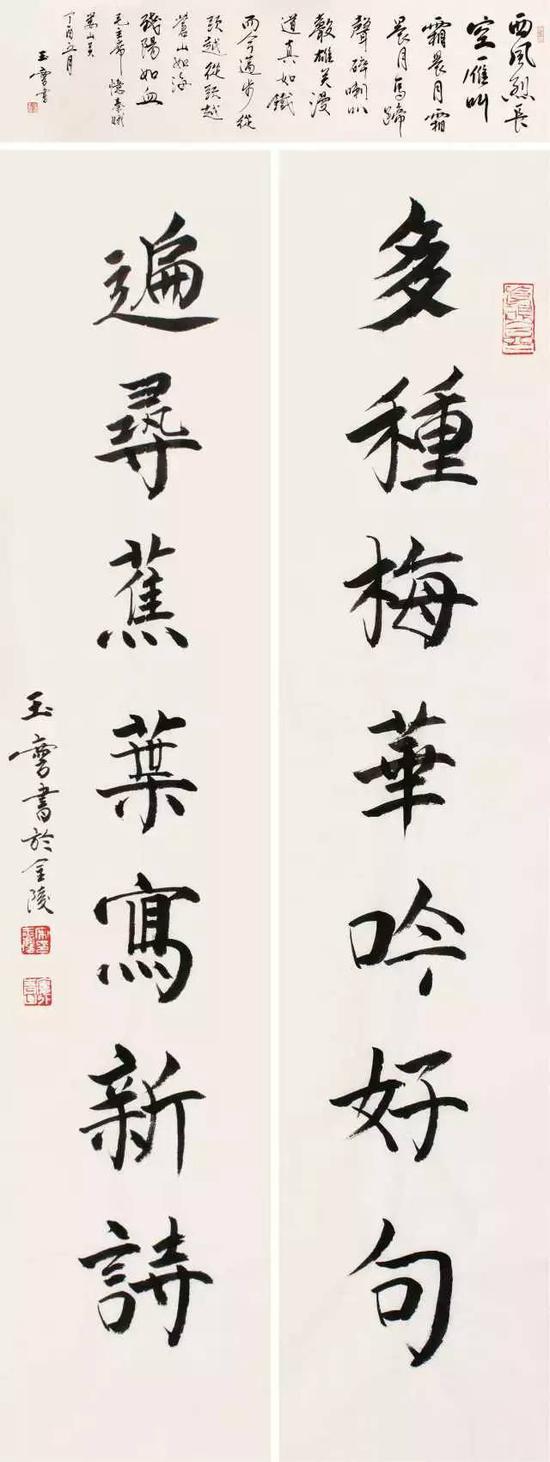 西風烈長
空雁叫
霜晨月霜
晨月馬蹄
聲碎喇叭
聲雄关漫
道真如鐵
而今邁步從
頭越從頭越
蒼山如海
殘陽如血
毛主席 憶秦娥
娄山关
丁酉五月
玉書
多種梅華吟好句
遍尋蕉葉寫新詩
玉書於金陵